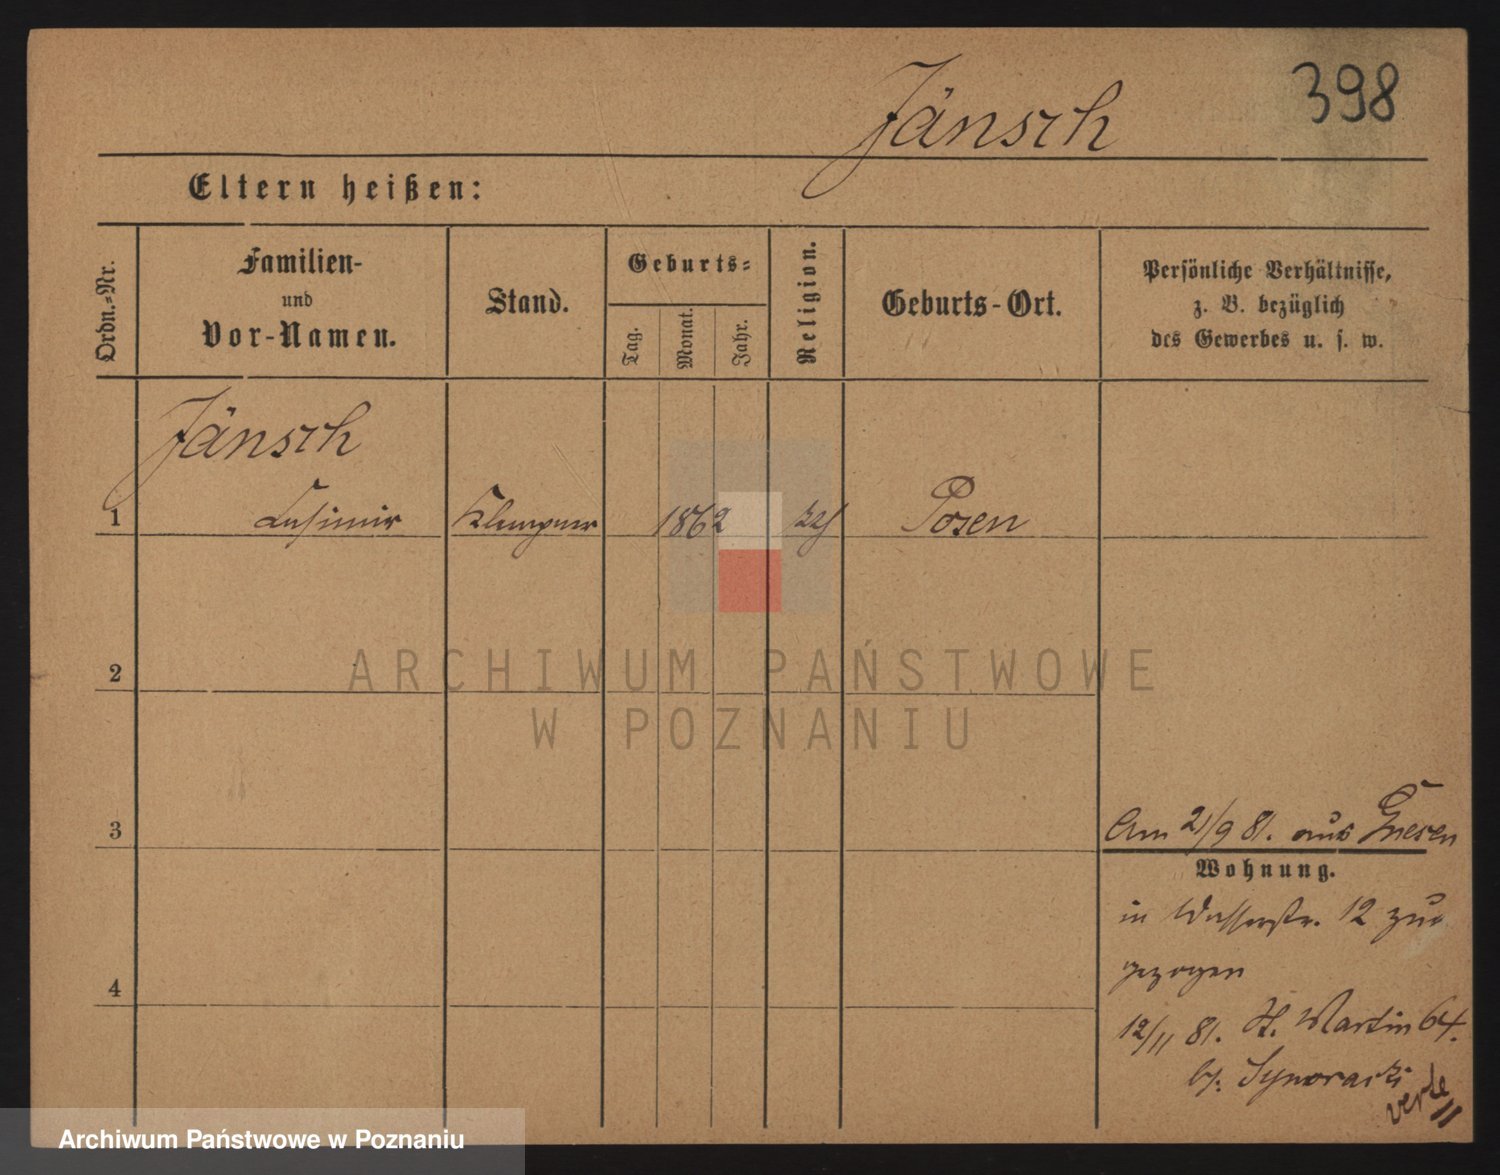 398
Jänsch
Eltern heißen:
Ordn.-Nr.
Familien-
und
Vor-Namen.
Stand.
Geburts-
Tag.
Monat.
Jahr.
Religion.
Geburts-Ort.
Persönliche Verhältnisse,
z. B. bezüglich
des Gewerbes u. s. w.
Jänsch
1 Casimir Klempner 1862 Posen
2
ARCHIWUM PAŃSTWOWE
W POZNANIU
3
Am 21/9 81. aus Gnesen
Wohnung.
in Wasserstr. 12 zu
gezogen
4
12/11 81. St. Martin 64.
bei Synoracki
verte
Archiwum Państwowe w Poznaniu